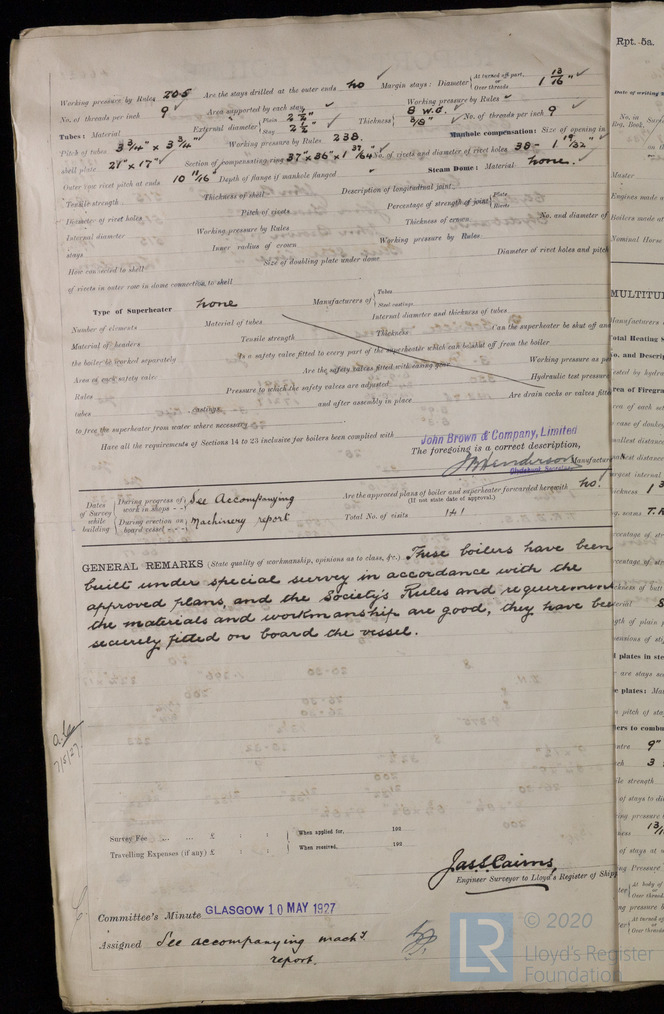 Working pressure by Rules 205 Are the stays drilled at the outer ends No Margin stays: Diameter { At turned off part, or Over threads 1 13/16"
No. of threads per inch 9 Area supported by each stay Working pressure by Rules
Tubes: Material External diameter { Plain 2 1/2" Stay 2 1/2" Thickness { 8 W.G. 3/8" No. of threads per inch 9
Pitch of tubes 3 3/4" x 3 3/4" Working pressure by Rules 238. Manhole compensation: Size of opening in
shell plate 21" x 17" Section of compensating ring 37" x 36" x 1 37/64" No. of rivets and diameter of rivet holes 38 - 1 19/32"
Outer row rivet pitch at ends 10 11/16 Depth of flange if manhole flanged Steam Dome: Material none.
Tensile strength Thickness of shell Description of longitudinal joint
Diameter of rivet holes Pitch of rivets Percentage of strength of joint { Plate Rivets
Internal diameter Working pressure by Rules Thickness of crown No. and diameter of
stays Inner radius of crown Working pressure by Rules
How connected to shell Size of doubling plate under dome Diameter of rivet holes and pitch
of rivets in outer row in dome connection to shell
Type of Superheater none Manufacturers of { Tubes Steel castings
Number of elements Material of tubes Internal diameter and thickness of tubes
Material of headers Tensile strength Thickness Can the superheater be shut off and
the boiler be worked separately Is a safety valve fitted to every part of the superheater which can be shut off from the boiler
Area of each safety valve Are the safety valves fitted with easing gear Working pressure as per
Rules Pressure to which the safety valves are adjusted Hydraulic test pressure
tubes castings and after assembly in place Are drain cocks or valves fitted
to free the superheater from water where necessary
Have all the requirements of Sections 14 to 23 inclusive for boilers been complied with
John Brown & Company, Limited
The foregoing is a correct description,
J B Henderson Manufacturer
Clydebank Secretary
Dates of Survey while building { During progress of work in shops - - During erection on board vessel - - - } See Accompanying Machinery report
Are the approved plans of boiler and superheater forwarded herewith No!
(If not state date of approval.)
Total No. of visits 141
GENERAL REMARKS (State quality of workmanship, opinions as to class, &c.) These boilers have been
built under special survey in accordance with the
approved plans, and the Society's Rules and requirement
the materials and workmanship are good, they have bee
securely fitted on board the vessel.
7/5/27
Survey Fee ... ... £ : : { When applied for, 192
Travelling Expenses (if any) £ : : { When received, 192
Jas. S. Cairns,
Engineer Surveyor to Lloyd's Register of Ship
Committee's Minute GLASGOW 10 MAY 1927
Assigned See accompanying machy
report.
LR © 2020
Lloyd's Register
Foundation
Rpt. 5a.
Date of writing
No. in
Reg. Book.
Master
Engines made
Boilers made
Nominal Horse
MULTITU
Manufacturers
Total Heating S
No. and Descrip
Area of Firegra